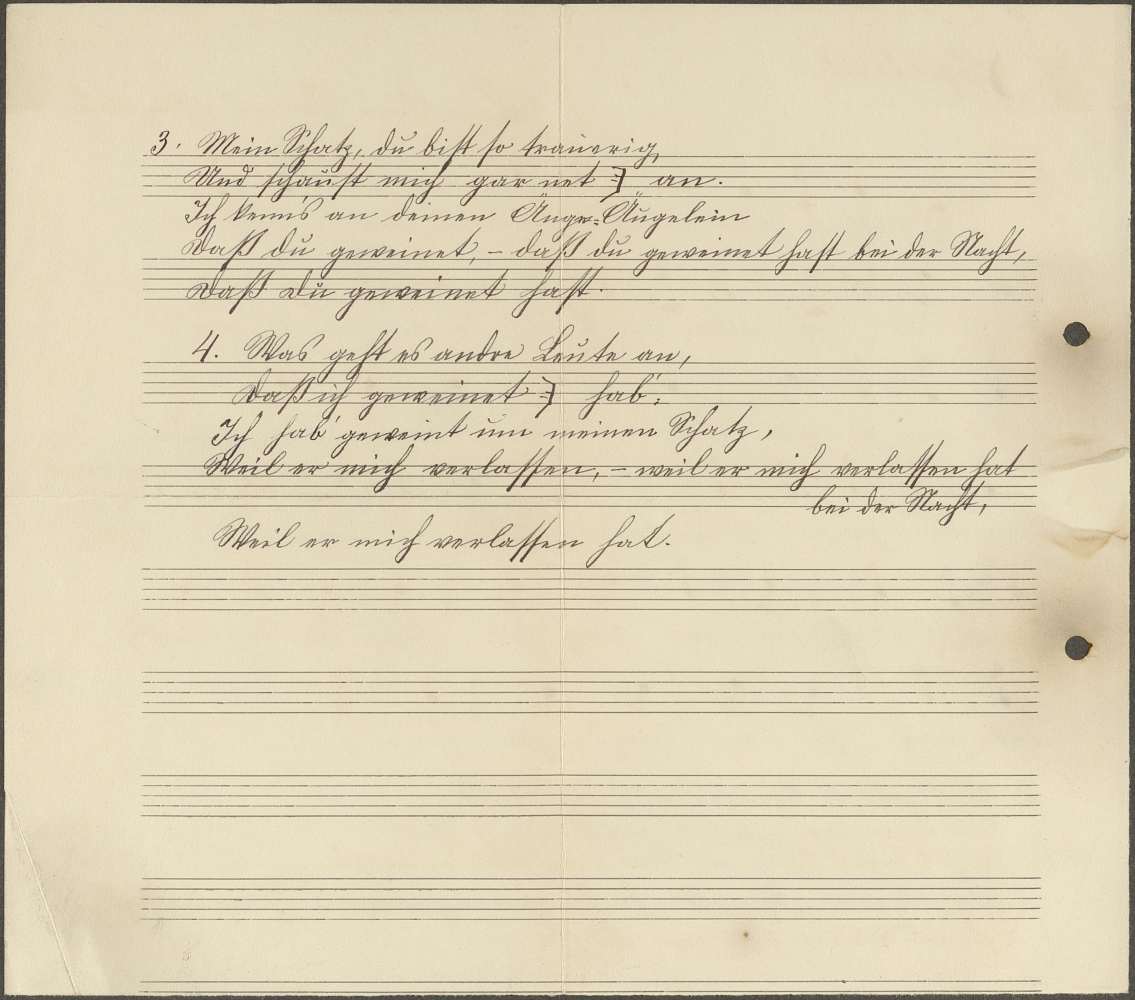 3. Mein Schatz, du bist so trauerig,
Und schaust mich gar net :| an.
Ich kenn's an deinen Äuge=Äugelein
Daß du geweinet, – daß du geweinet hast bei der Nacht,
Daß du geweinet hast.
4. Was geht es andre Leute an,
Daß ich geweinet :| hab';
Ich hab' geweint um meinen Schatz,
Weil er mich verlassen, – weil er mich verlassen hat
bei der Nacht,
Weil er mich verlassen hat.